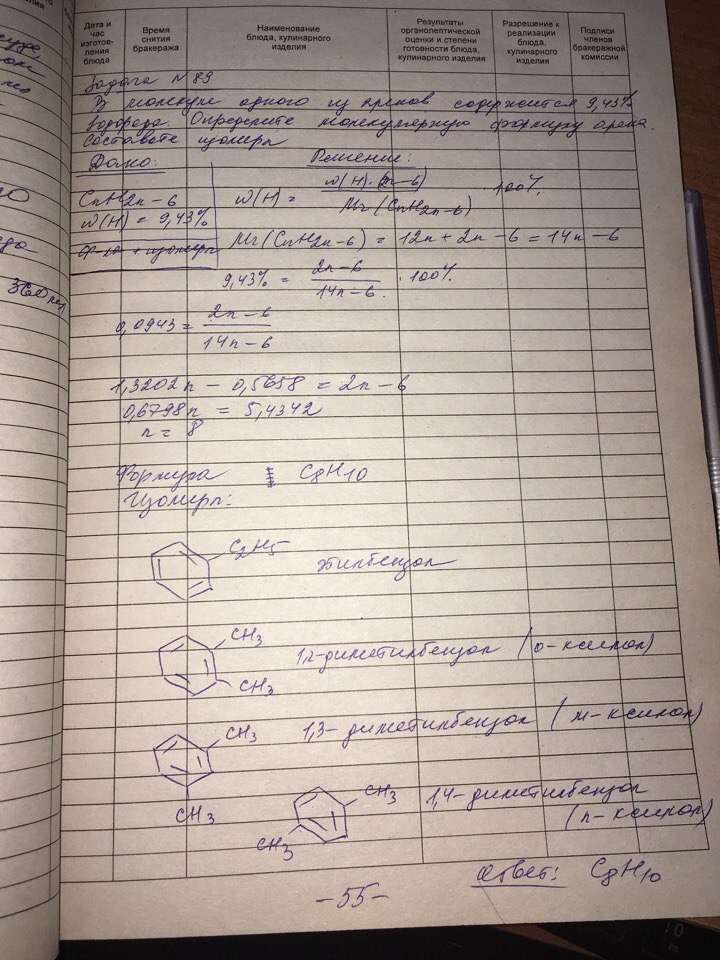 Дата и час изготов- ления блюда
Время снятия бракеража
Наименование блюда, кулинарного изделия
Результаты органолептической оценки и степени готовности блюда, кулинарного изделия
Разрешение к реализации блюда, кулинарного изделия
Подписи членов бракеражной комиссии
Задача №89
В молекуле одного из аренов содержится 9,43%
водорода. Определите молекулярную формулу арена.
Составьте изомеры
Дано:
Решение:
CnH2n-6
w(H) = 9,43%
w(H) = w(H)·(2n-6) / Mr(CnH2n-6) · 100%
Mr(CnH2n-6) = 12n + 2n - 6 = 14n - 6
9,43% = 2n-6 / 14n-6 · 100%
0,0943 = 2n-6 / 14n-6
1,3202n - 0,5658 = 2n - 6
0,6798n = 5,4342
n = 8
Формула C8H10
Изомеры:
C2H5
этилбензол
CH3
CH3
1,2-диметилбензол (о-ксилол)
CH3
CH3
1,3-диметилбензол (м-ксилол)
CH3
CH3
1,4-диметилбензол
(п-ксилол)
Ответ: C8H10
-55-
360